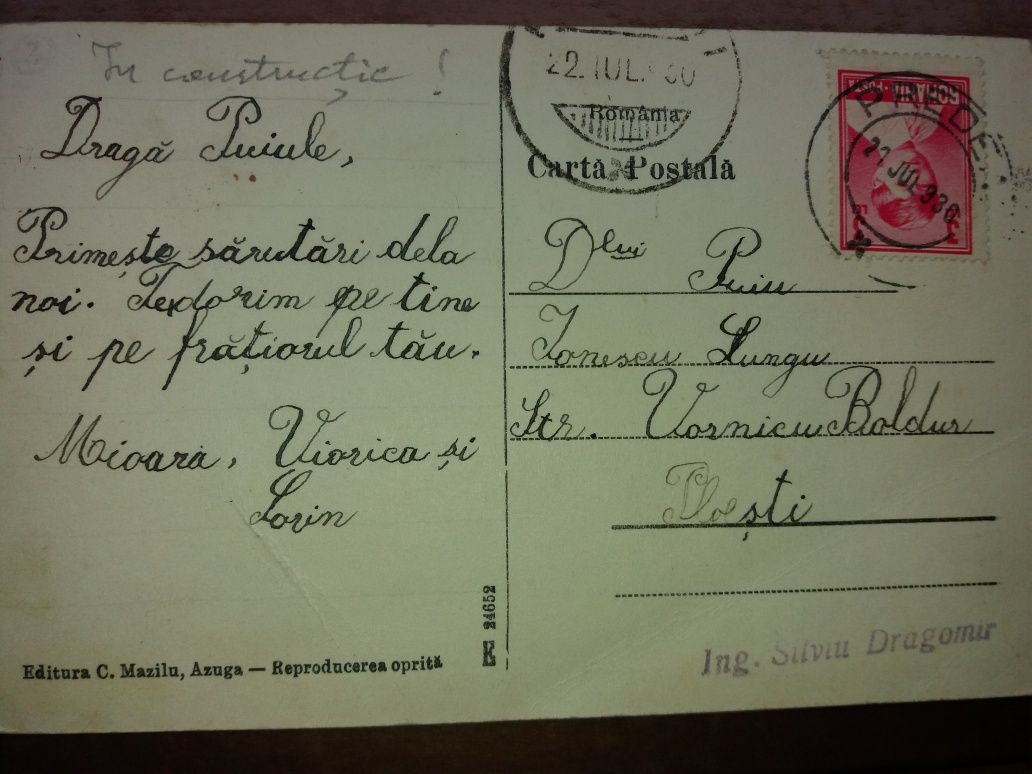 In construcție !
Dragă Puiule,
Primește sărutări dela
noi. Te dorim pe tine
și pe frățiorul tău.
Mioara, Viorica și
Lorin
Editura C. Mazilu, Azuga — Reproducerea oprită
24652
22. IUL. 930
România
Carta Postală
PREDE
21 JUL 930
ROMANIA POSTA
Dlui Puiu
Ionescu Lungu
Str. Vornicu Boldur
Ploești
Ing. Silviu Dragomir